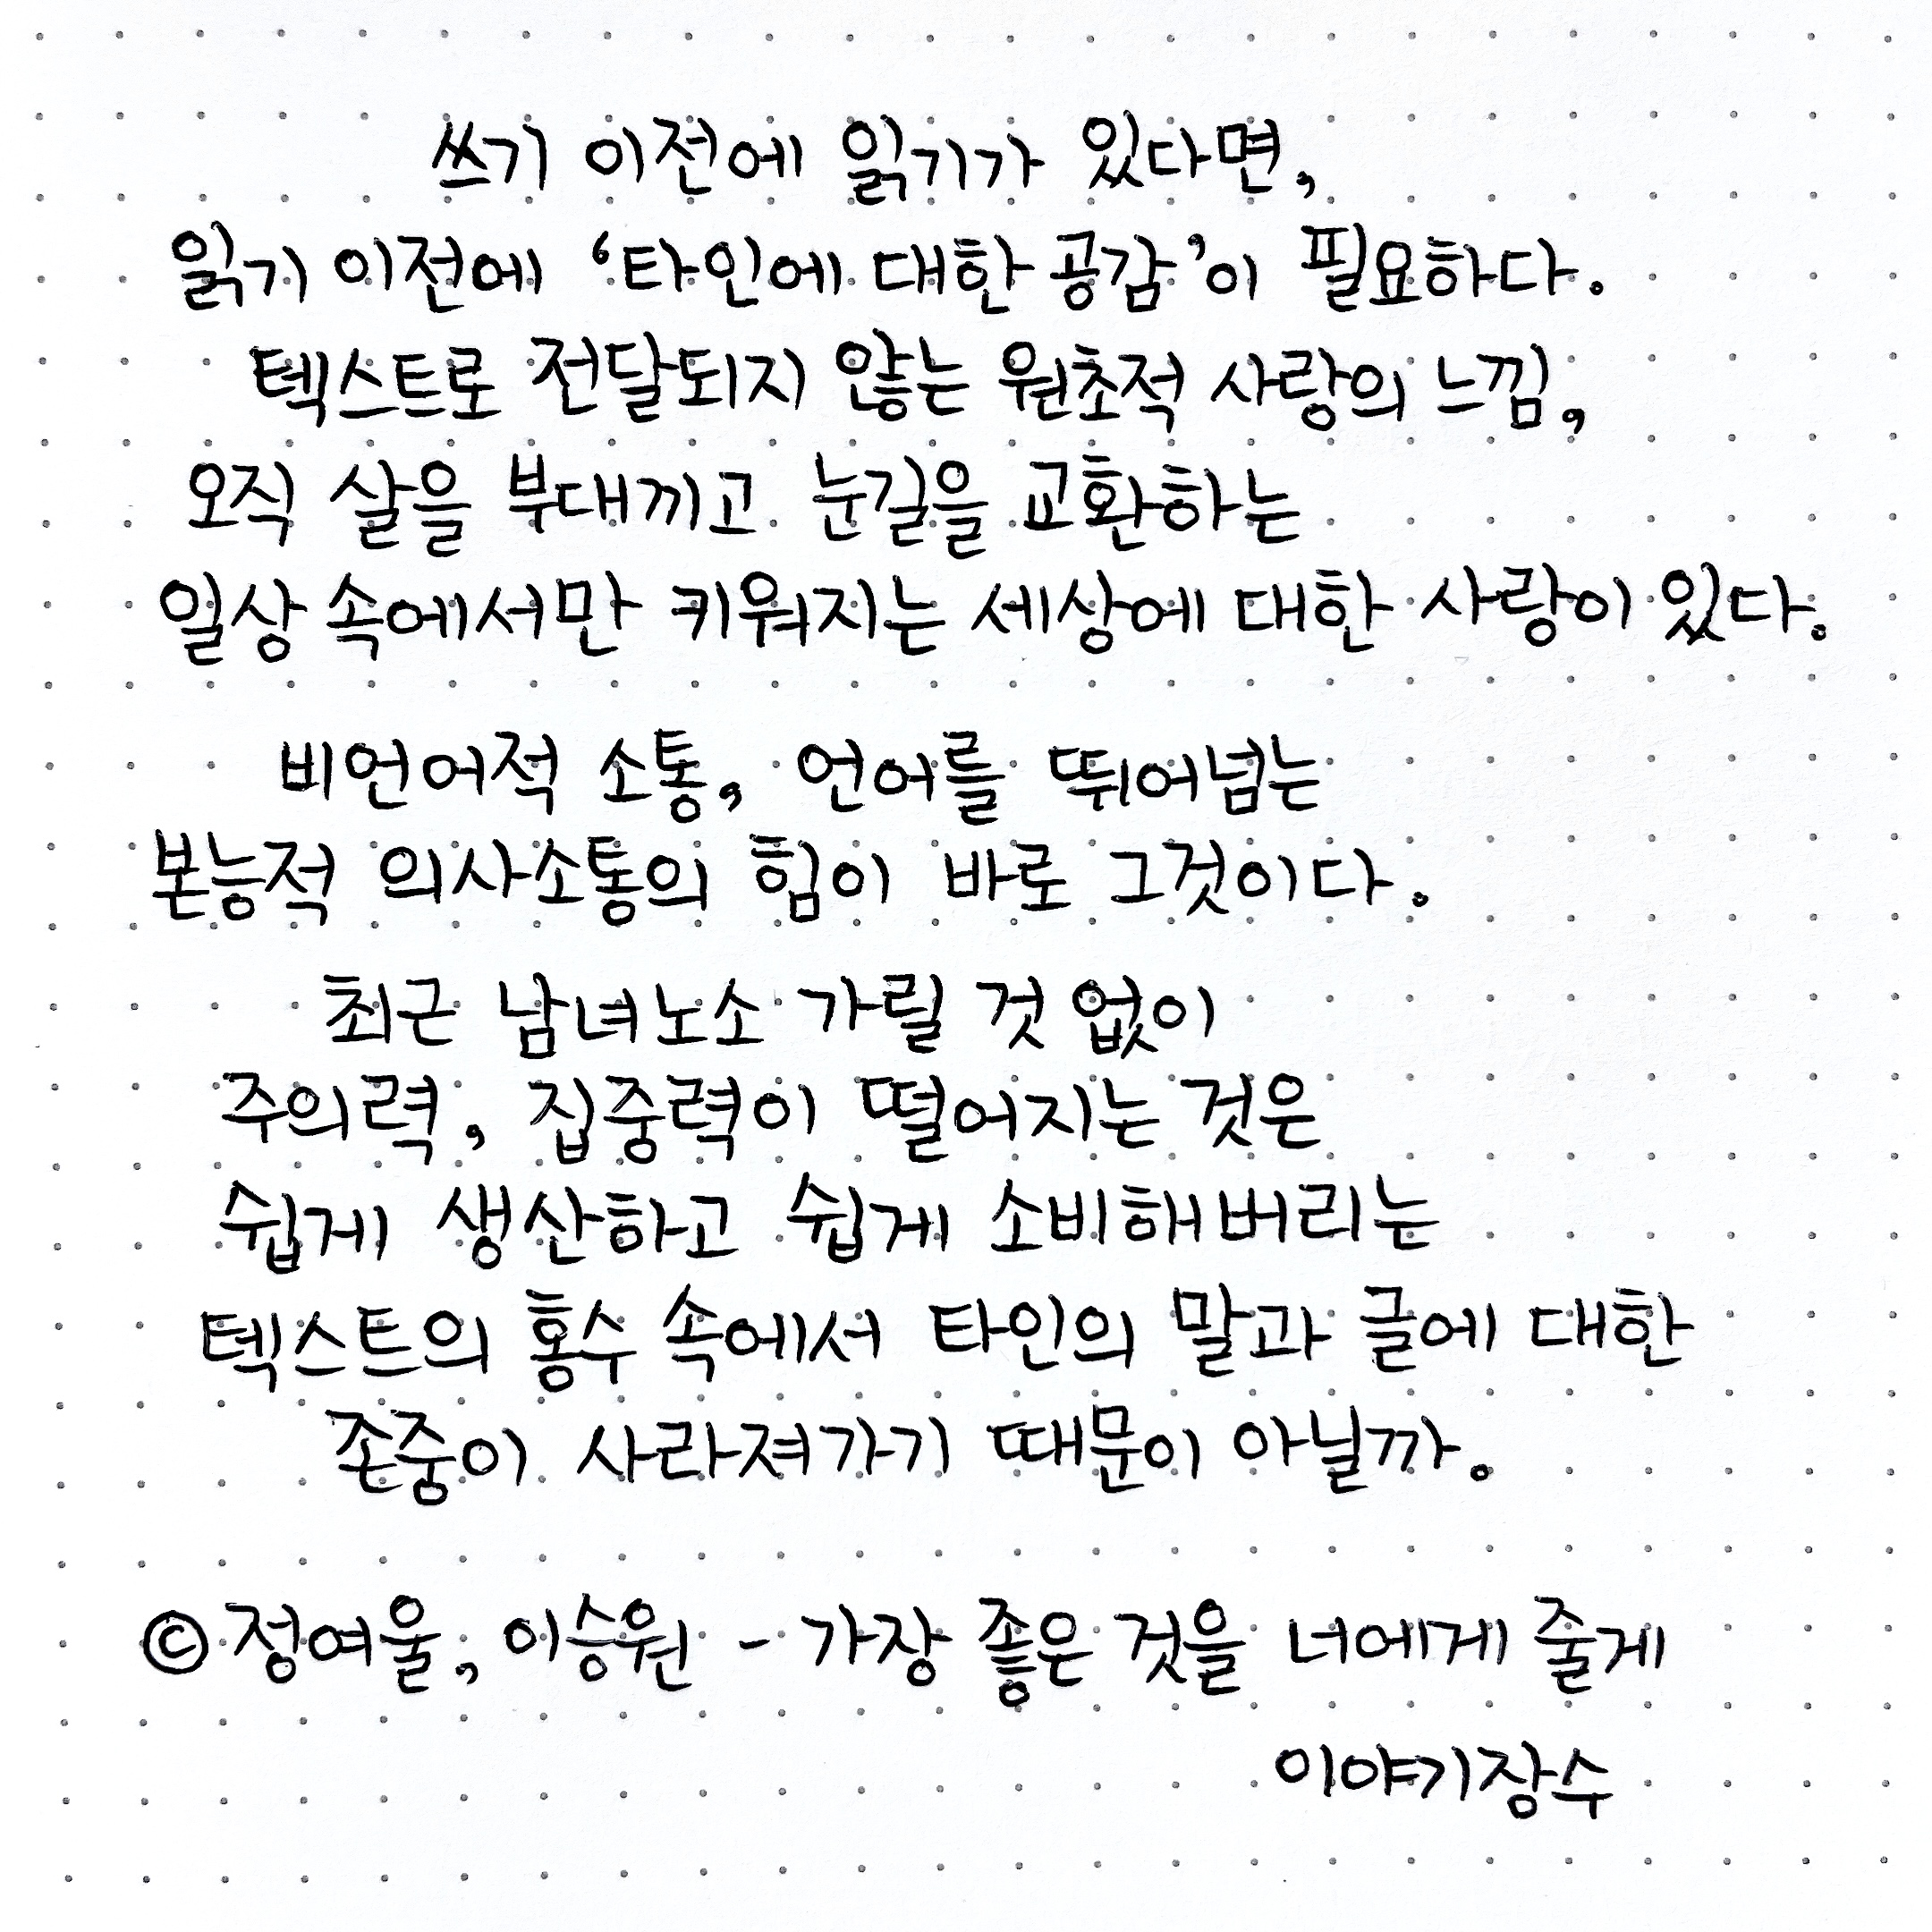 쓰기 이전에 읽기가 있다면,
읽기 이전에 ‘타인에 대한 공감’이 필요하다.
텍스트로 전달되지 않는 원초적 사랑의 느낌,
오직 살을 부대끼고 눈길을 교환하는
일상 속에서만 키워지는 세상에 대한 사랑이 있다.
비언어적 소통, 언어를 뛰어넘는
본능적 의사소통의 힘이 바로 그것이다.
최근 남녀노소 가릴 것 없이
주의력, 집중력이 떨어지는 것은
쉽게 생산하고 쉽게 소비해버리는
텍스트의 홍수 속에서 타인의 말과 글에 대한
존중이 사라져가기 때문이 아닐까.
© 정여울, 이승원 - 가장 좋은 것을 너에게 줄게
이야기장수